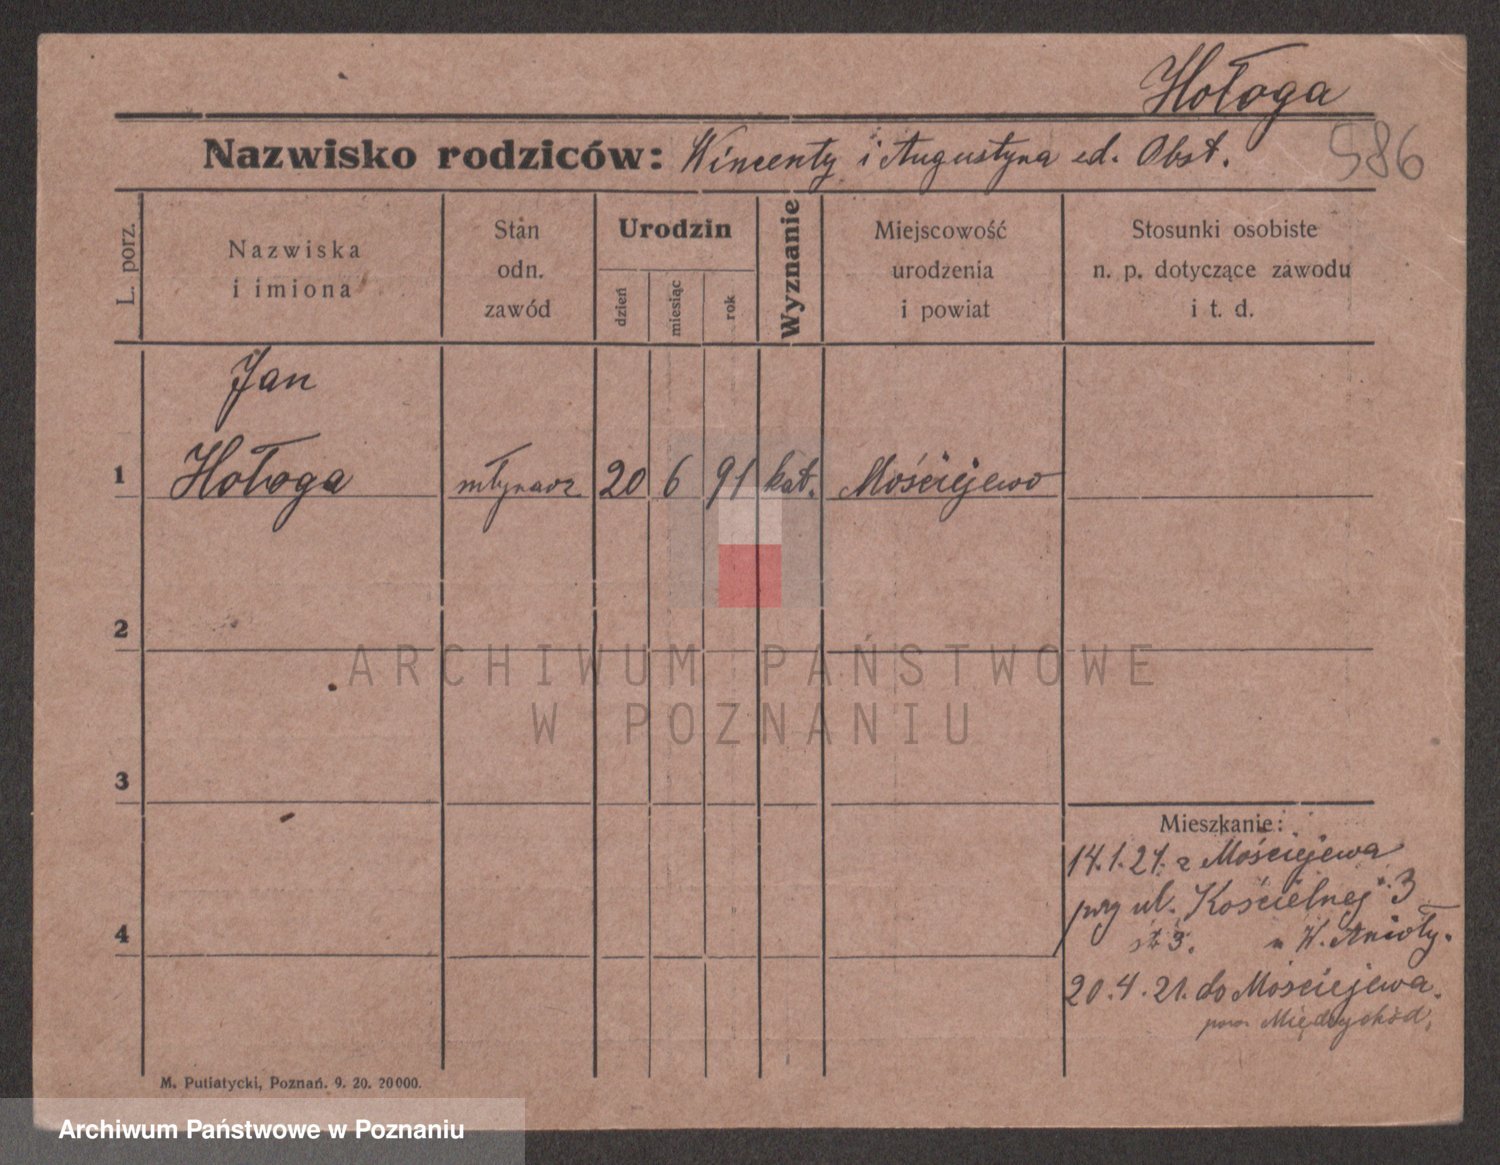 Hołoga
586
Nazwisko rodziców: Wincenty i Augustyna ed. Obst.
L. porz.
Nazwiska
i imiona
Stan
odn.
zawód
Urodzin
dzień
miesiąc
rok
Wyznanie
Miejscowość
urodzenia
i powiat
Stosunki osobiste
n. p. dotyczące zawodu
i t. d.
Jan
1 Hołoga młynarz 20 6 91 kat. Mościejewo
2
3
4
Mieszkanie:
14.1.21. z Mościejewa
przy ul. Kościelnej 3
3. u W. Anioły.
20.4.21. do Mościejewa.
pow. Międzychód,
M. Putiatycki, Poznań. 9. 20. 20000.
ARCHIWUM PAŃSTWOWE
W POZNANIU
Archiwum Państwowe w Poznaniu